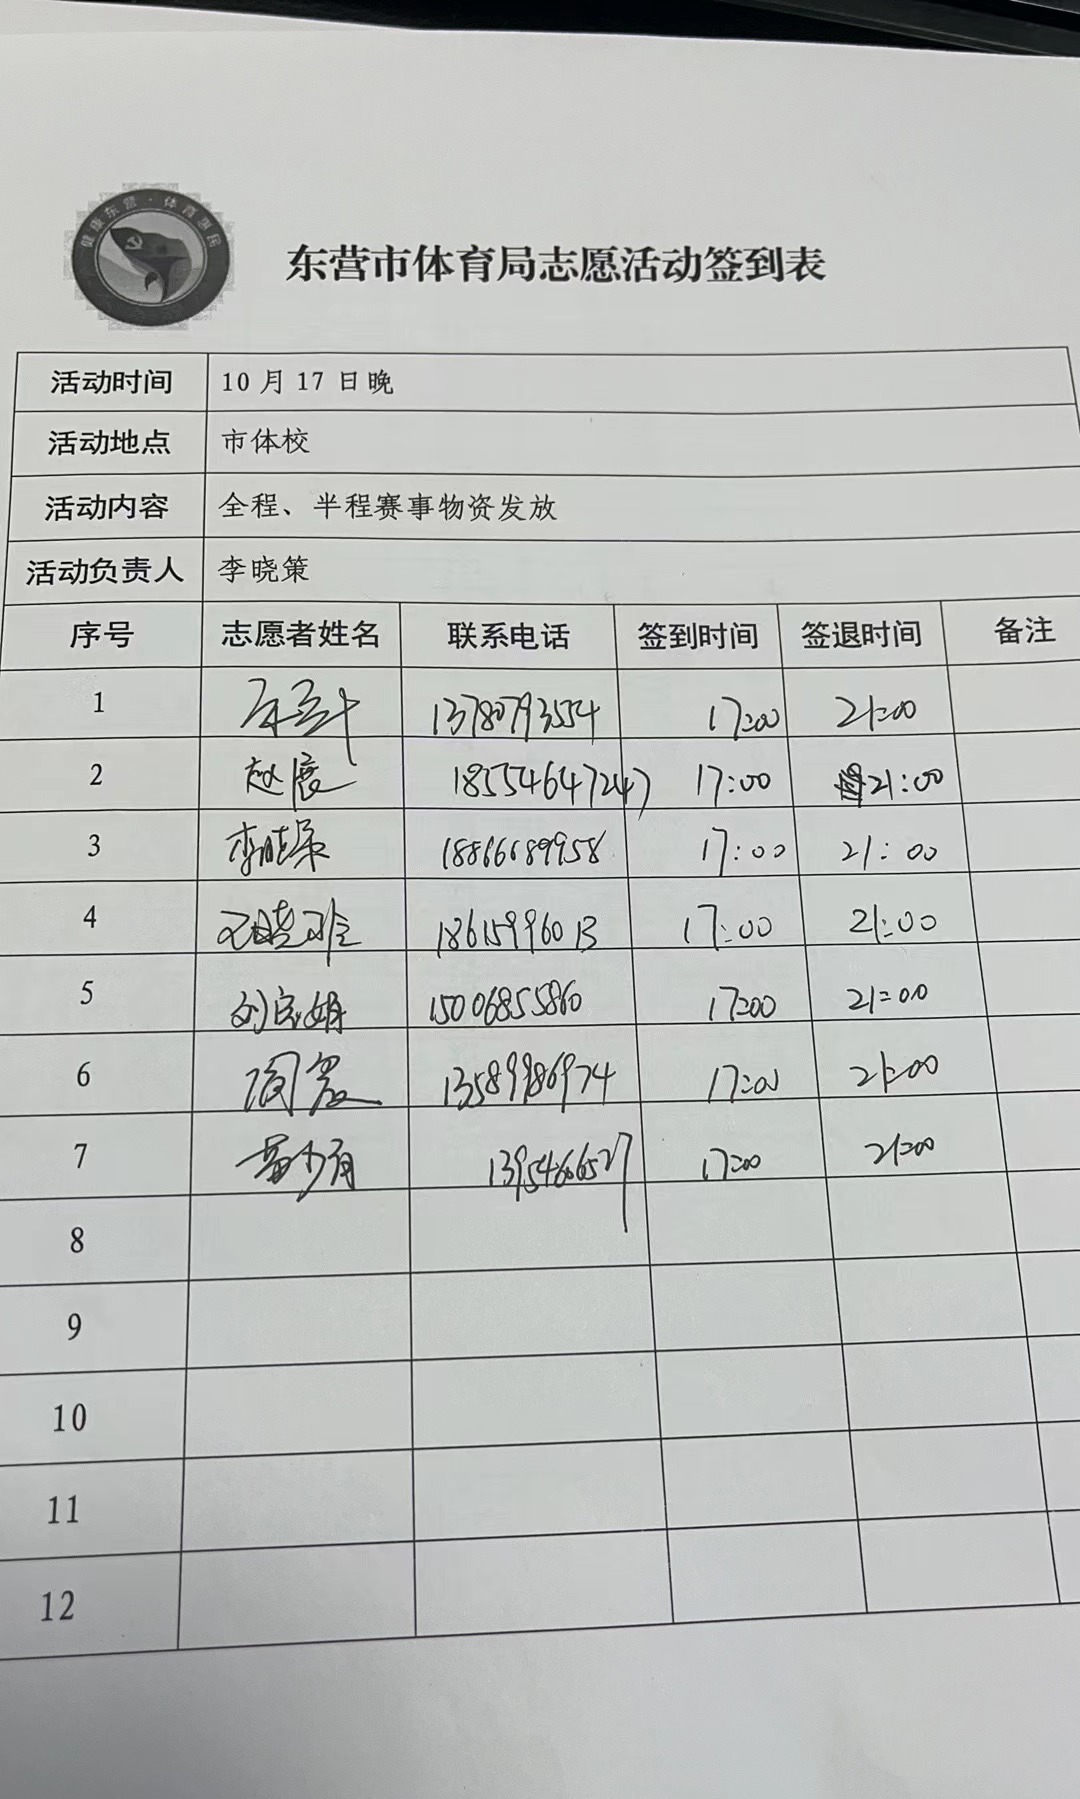 健康东营·体育惠民
东营市体育局志愿活动签到表
活动时间 10月17日晚
活动地点 市体校
活动内容 全程、半程赛事物资发放
活动负责人 李晓策
序号 志愿者姓名 联系电话 签到时间 签退时间 备注
1 13780793554 17:00 21:00
2 赵展 18554647247 17:00 21:00
3 李晓策 18866689958 17:00 21:00
4 18615996013 17:00 21:00
5 15006855860 17:00 21:00
6 13589986974 17:00 21:00
7 13954666527 17:00 21:00
8
9
10
11
12